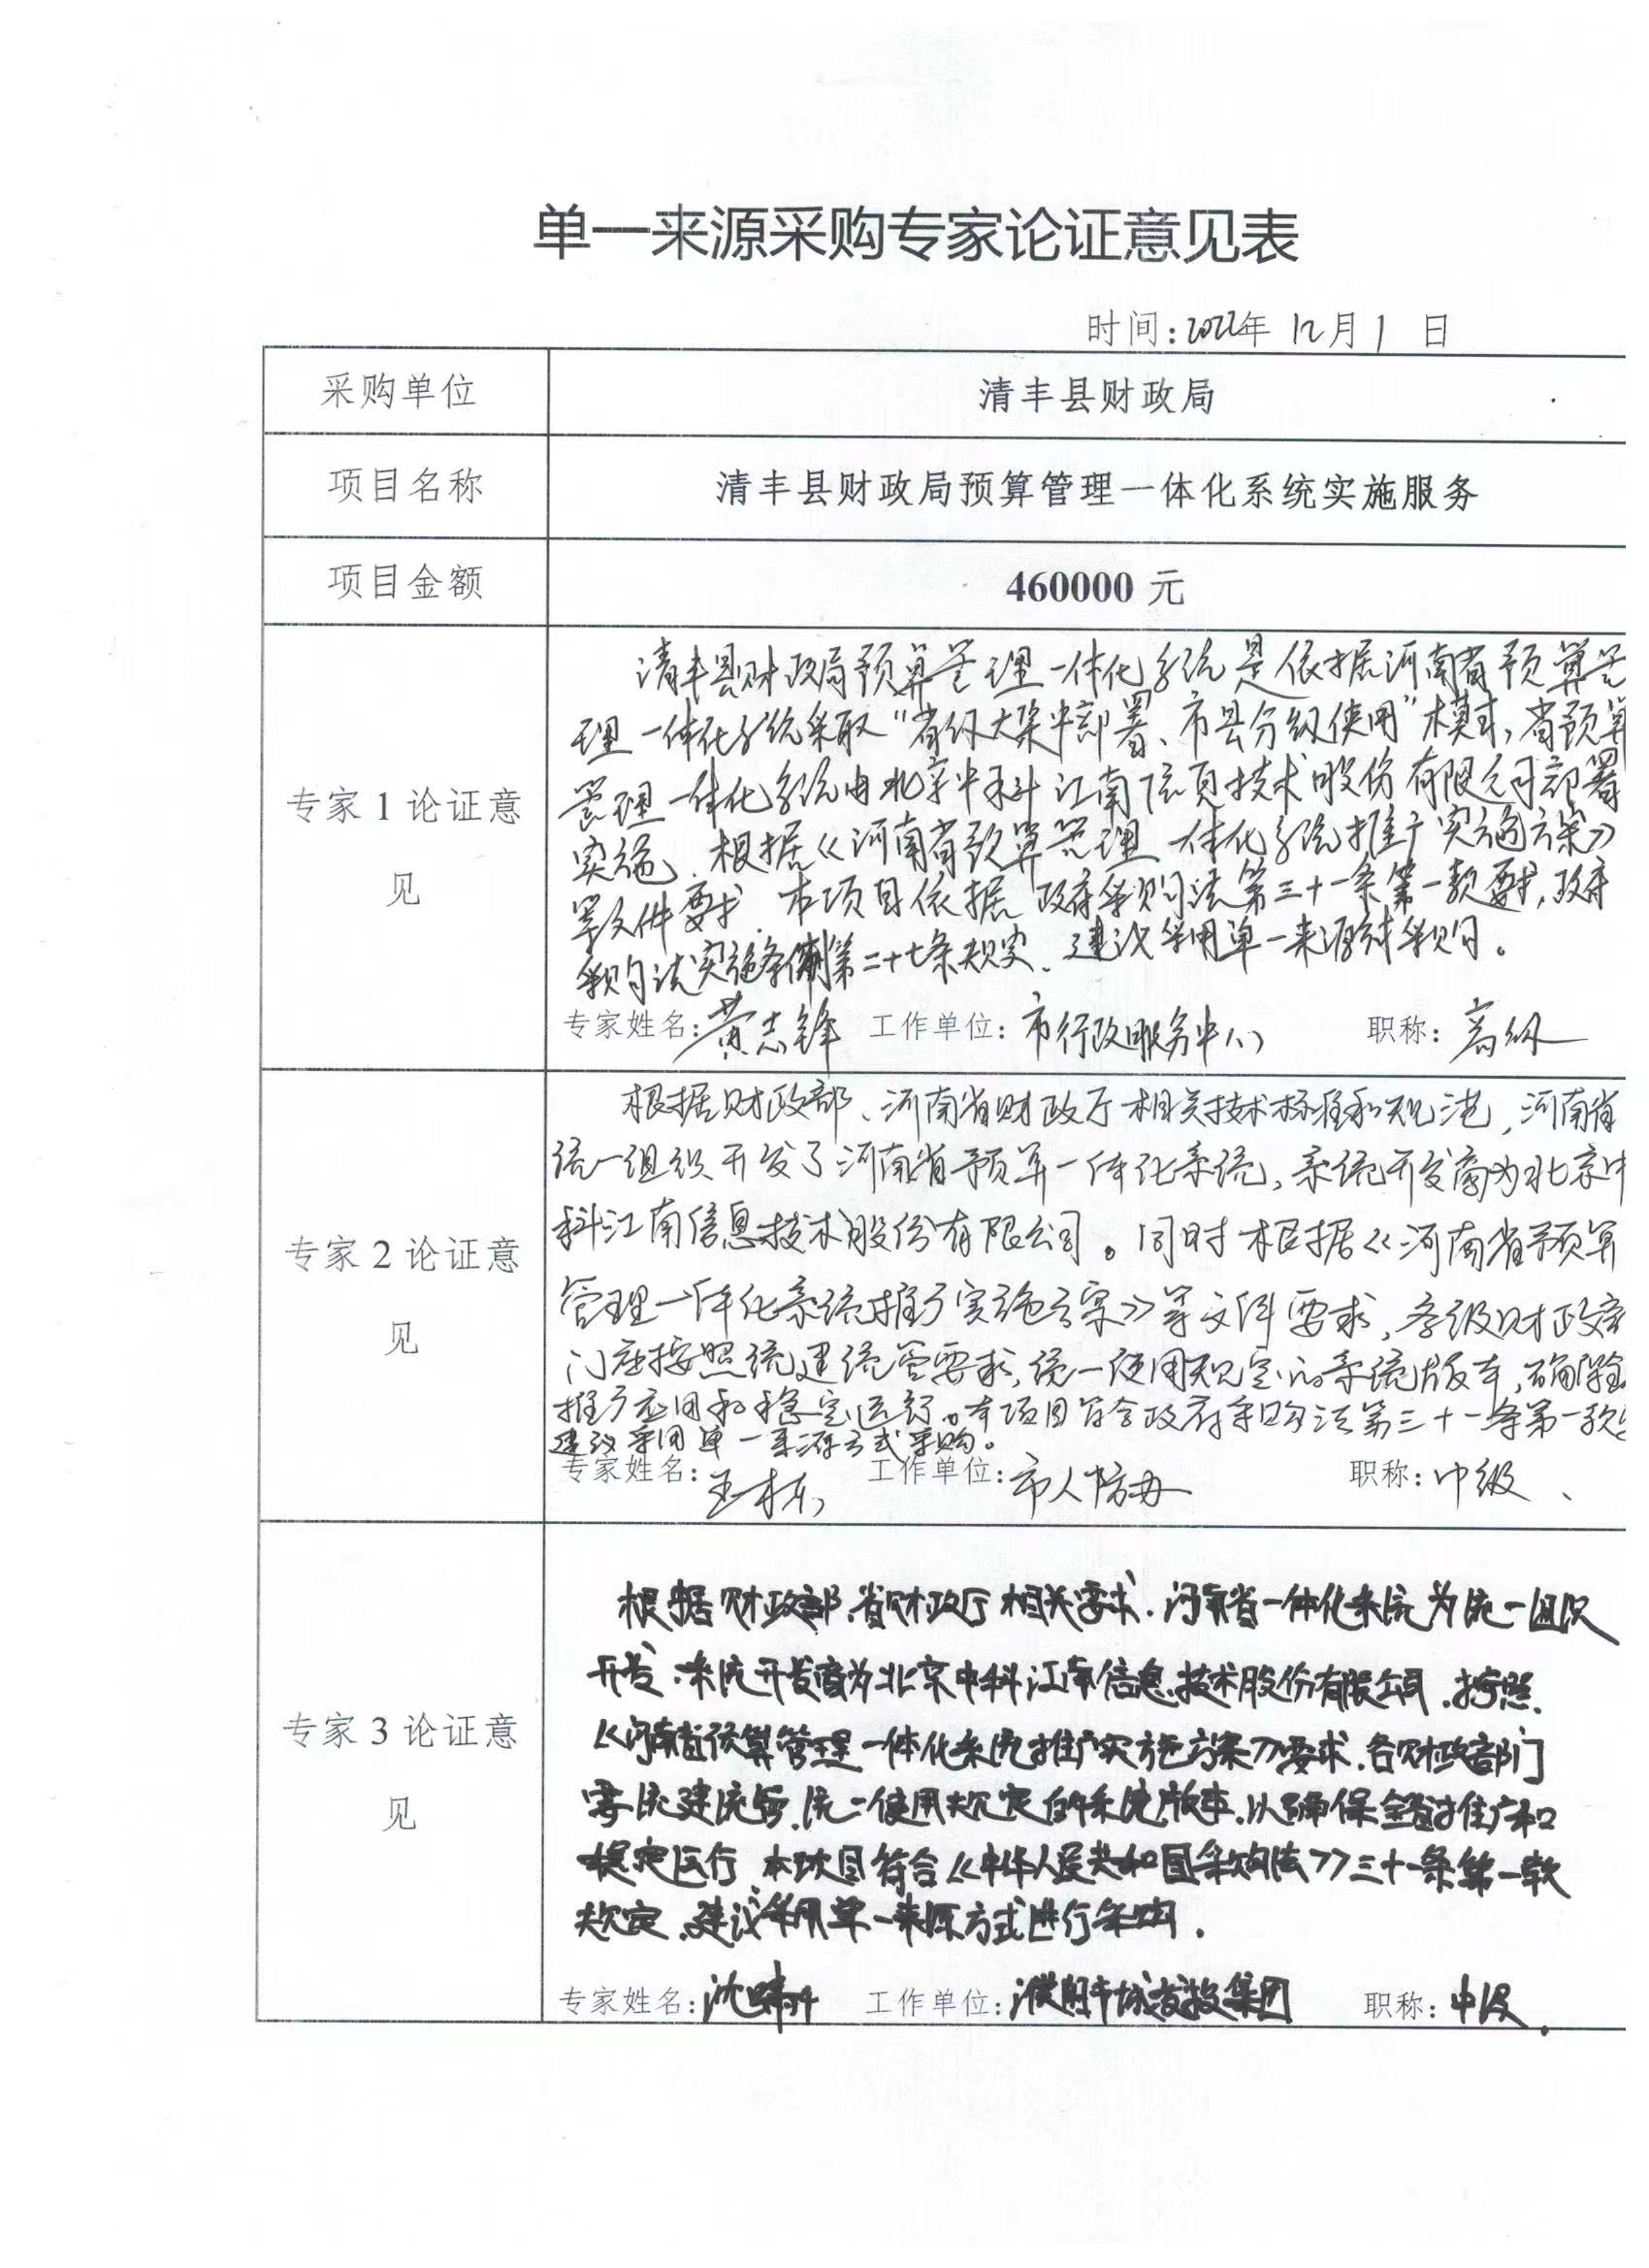 单一来源采购专家论证意见表
时间:2022年 12月 1 日
采购单位
清丰县财政局
项目名称
清丰县财政局预算管理一体化系统实施服务
项目金额
460000 元
专家 1 论证意
见
清丰县财政局预算管理一体化系统是依据河南省预算管
理一体化系统采取“省级大集中部署、市县分级使用”模式,省预算
管理一体化系统由北京中科江南信息技术股份有限公司部署
实施。根据《河南省预算管理一体化系统推广实施方案》
等文件要求.本项目依据政府采购法第三十一条第一款要求,政府
采购法实施条例第二十七条规定、建议采用单一来源 采购。
专家姓名:黄志锋 工作单位:市行政服务中心 职称:高级
专家 2 论证意
见
根据财政部、河南省财政厅相关技术标准和规范,河南省
统一组织开发了河南省预算一体化系统,系统开发商为北京中
科江南信息技术股份有限公司。同时根据《河南省预算
管理一体化系统推广实施方案》等文件要求,各级财政部
门应按照统建统管要求,统一使用规定的系统版本,确保
推广应用和稳定运行。本项目符合政府采购法第三十一条第一款
建议采用单一来源方式采购。
专家姓名: 工作单位:市人防办 职称:中级、
专家 3 论证意
见
根据财政部、省财政厅相关要求.河南省一体化系统为统一组织
开发.系统开发商为北京中科江南信息技术股份有限公司.按照
《河南省预算管理一体化系统推广实施方案》要求.各财政部门
要统建统管.统一使用规定的系统版本.以确保全省推广和
稳定运行.本项目符合《中华人民共和国采购法》三十一条第一款
规定.建议采用单一来源方式进行采购.
专家姓名:沈 工作单位:濮阳市城 集团 职称:中级